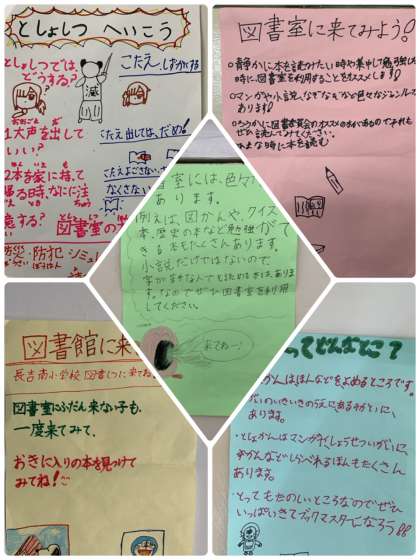 としょしつ へいこう
としょしつでは
どうする?
こたえ.しずかにする
滅
1大声を出して
いい?
こたえ 出しては、だめ!
2本を家に持って
帰る時、なにに注
意する?
なくさない
図書室の
防災・防犯
図書室に来てみよう!
静かに本を読みたい時や集中して勉強したい
時に図書室を利用することをオススメします!
マンガや小説、なぞなぞなど色々なジャンルが
あります!
ぜひ読んでみてください。
室には、色々
あります。
例えば、図かんや、クイズ
本、歴史の本など勉強が
できる本もたくさんあります。
小説だけではないので
字が苦手な人でも読める本は、ありま
す。なのでぜひ図書室を利用
してください。
まってねー!
図書館に来
長吉南小学校 図書しつに来てね
図書室にふだん来ない子も、
一度来てみて、
おきに入りの本を見つけて
みてね!
ってどんなとこ?
かんはほんなどをよめるところです。
あります。
・としょかんはマンガや、しょうせついがいに、
ずかんなどしらべれるほんもたくさん
あります。
・とっても たのしいところなのでぜひ
いっぱいきてブックマスターになろう!!